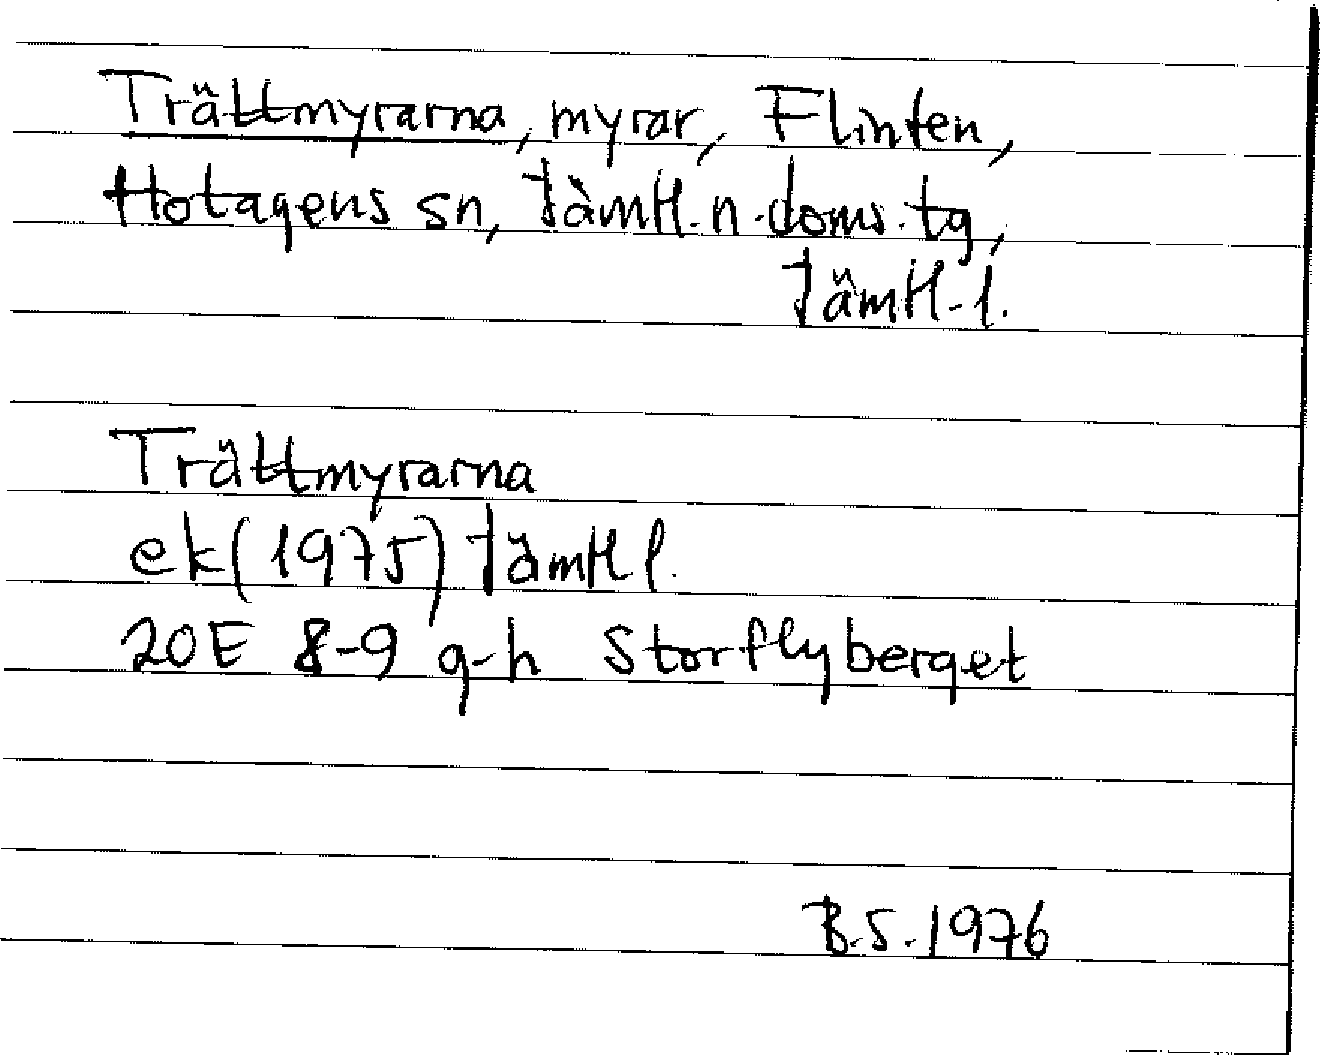 Trättmyrarna, myrar, Flinten,
Hotagens sn, Jämtl. n. doms. tg,
Jämtl. l.
Trättmyrarna
ek (1975) Jämtl l.
20E 8-9 g-h Storflyberget
B.S. 1976